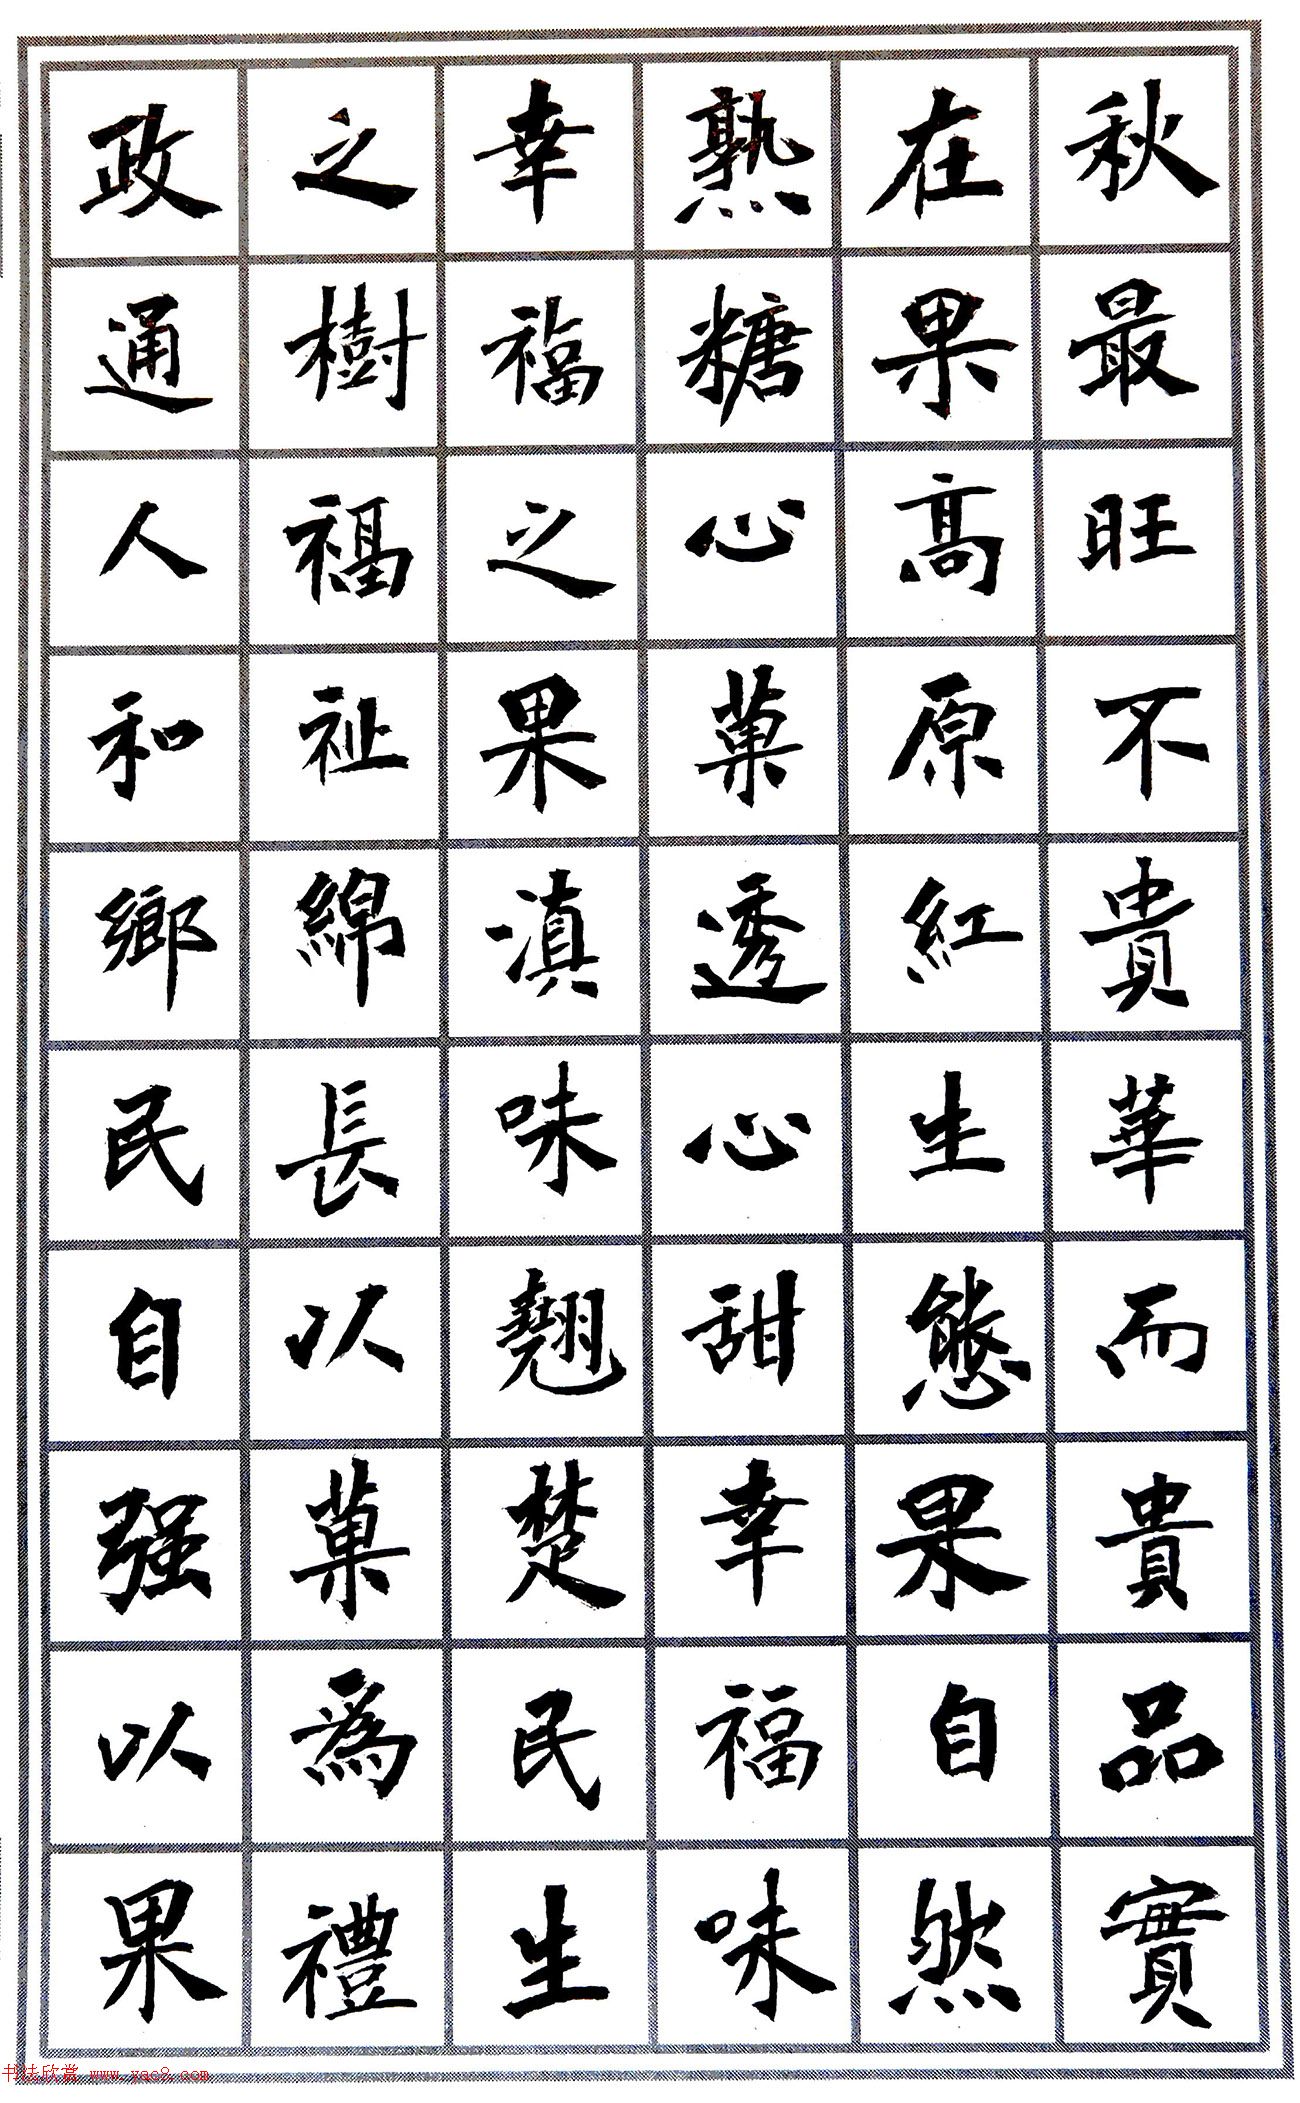 秋最旺不貴華而貴品實
在果高原紅生態果自然
熟糖心菓透心甜幸福味
幸福之果滇味翹楚民生
之樹福祉綿長以菓為禮
政通人和鄉民自强以果
书法欣赏 www.yac8.com